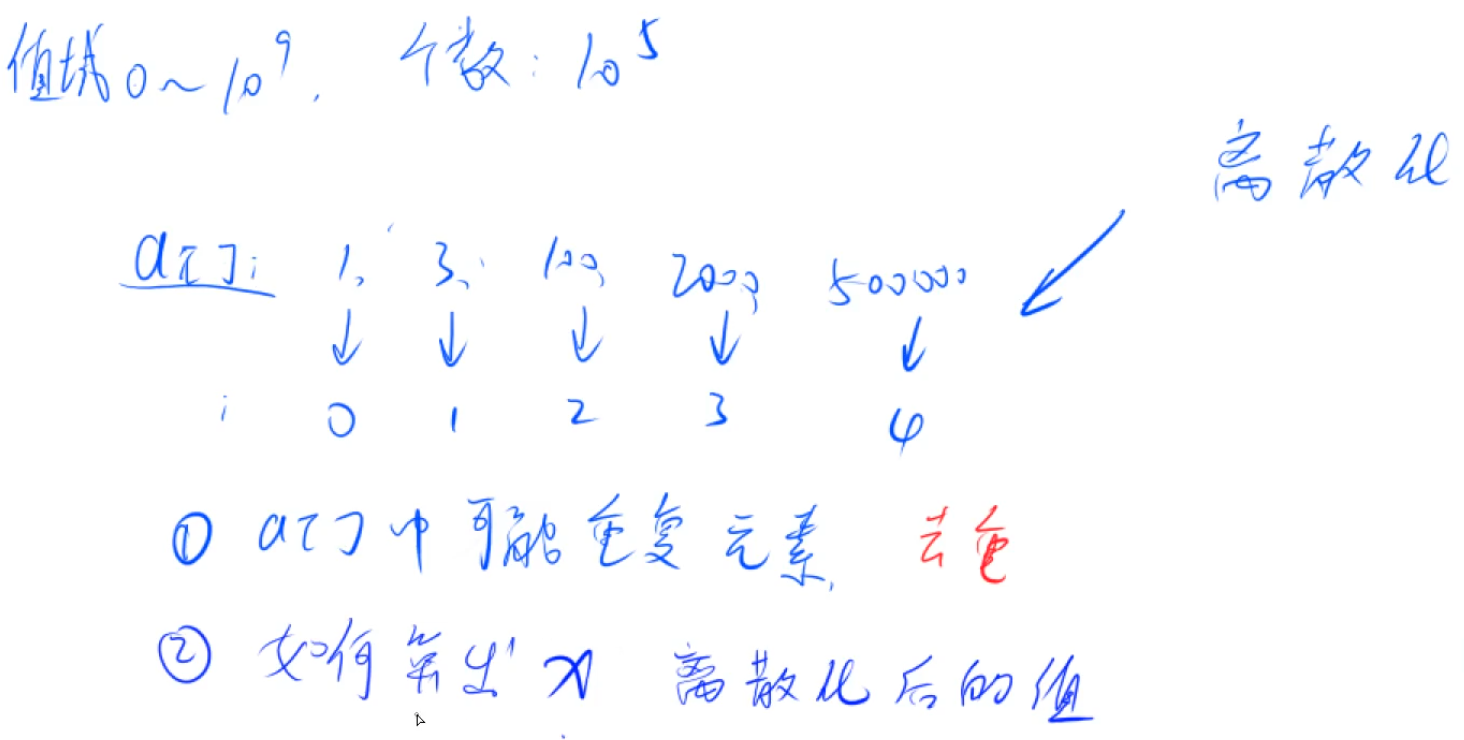 值域 0~10^9, 个数: 10^5
离散化
a[]: 1, 3, 100, 2000, 500000
i 0 1 2 3 4
① a[]中可能重复元素, 去重
② 如何算出 x 离散化后的值